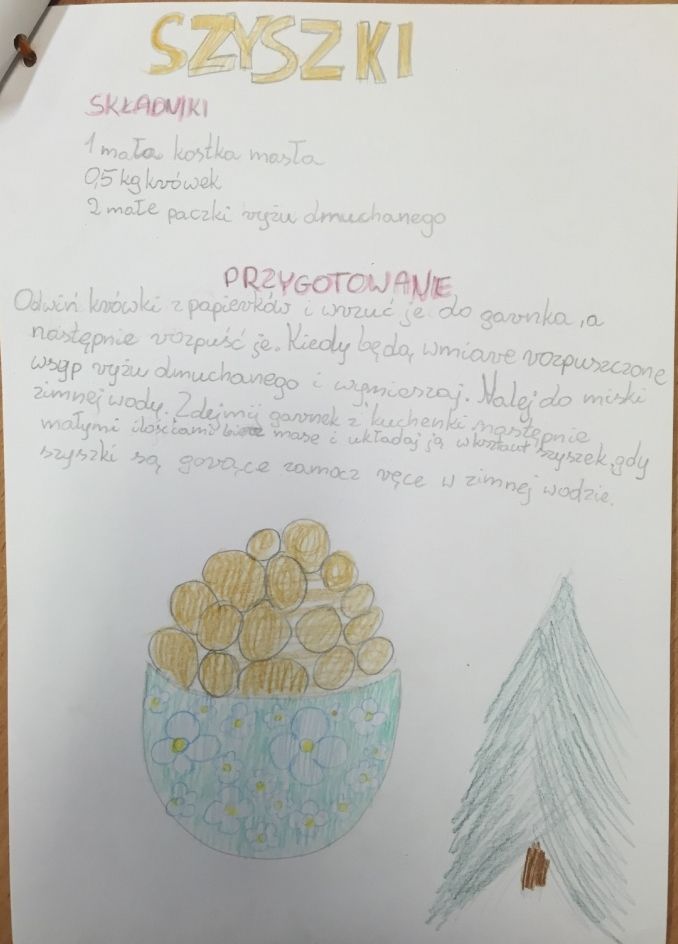 SZYSZKI
SKŁADNIKI
1 mała kostka masła
0,5 kg krówek
2 małe paczki ryżu dmuchanego
PRZYGOTOWANIE
Odwiń krówki z papierków i wrzuć je do garnka, a
następnie rozpuść je. Kiedy będą wmiarę rozpuszczone
wsyp ryżu dmuchanego i wymieszaj. Nalej do miski
zimnej wody. Zdejmij garnek z kuchenki następnie
małymi ilościami bierz masę i układaj ją w kształt szyszek, gdy
szyszki są gorące zamocz ręce w zimnej wodzie.